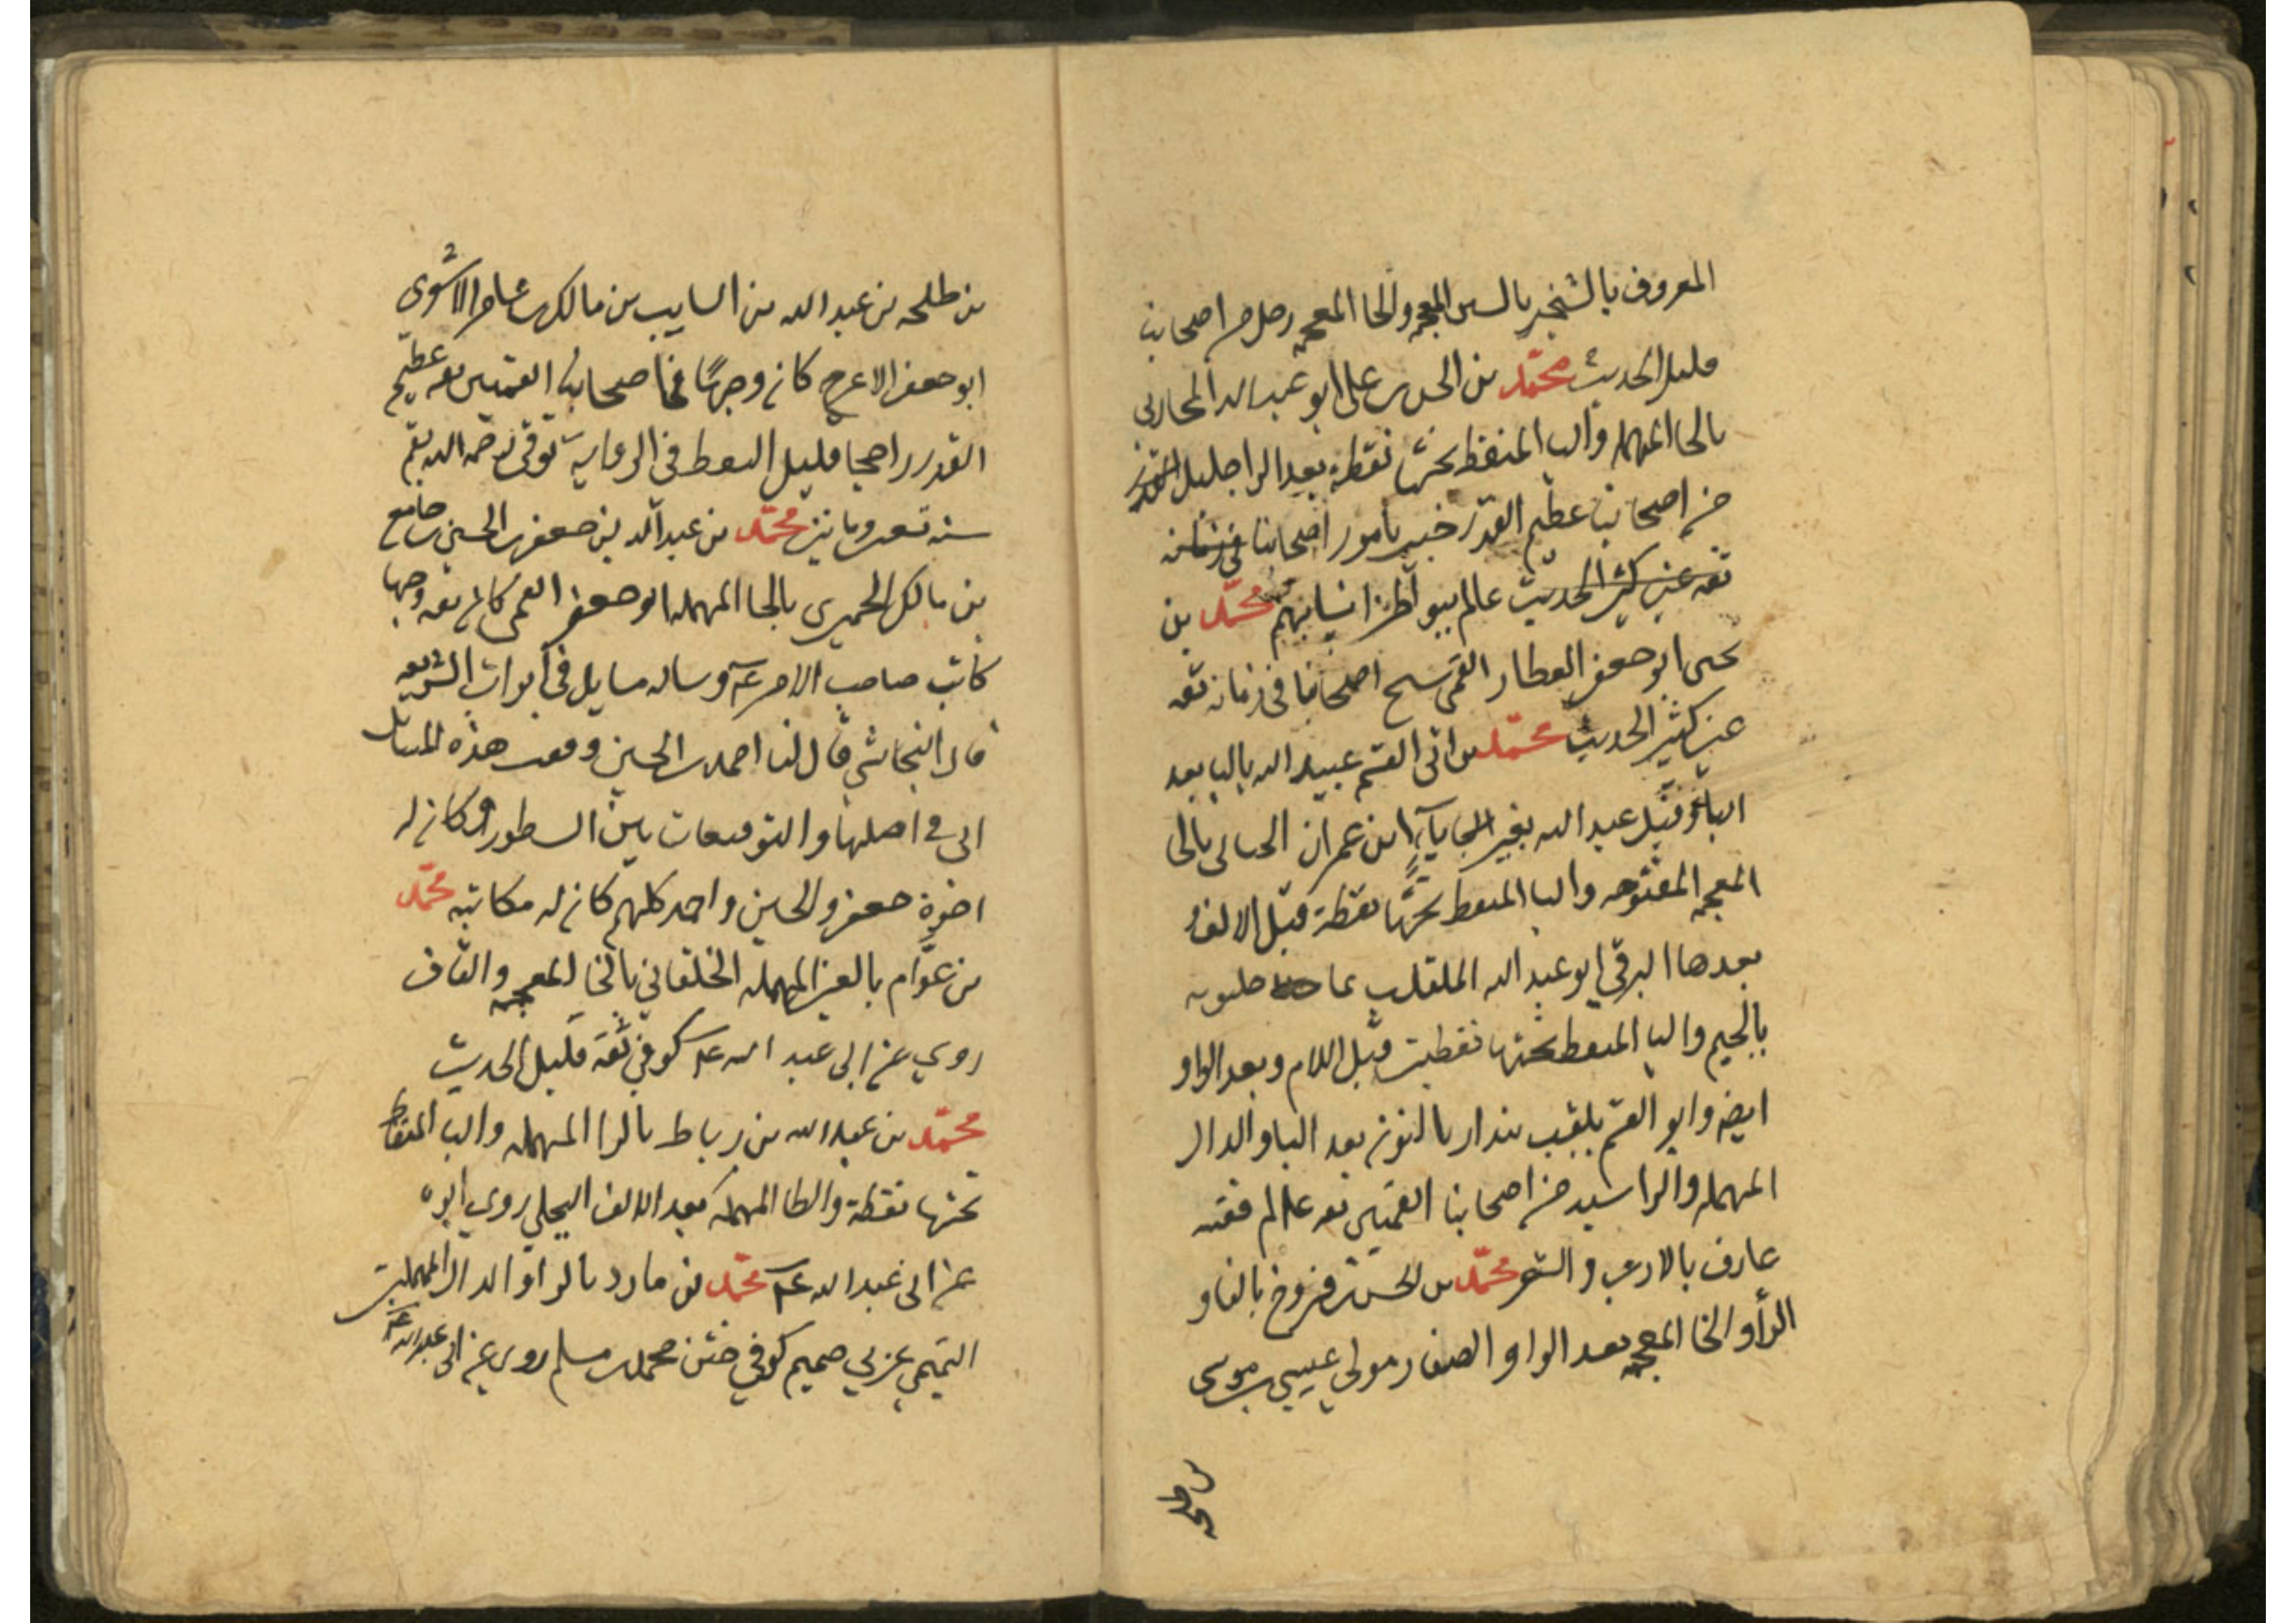 المعروف بالشخير بالسين المعجمه والخا المعجمه رجل من اصحابنا
قليل الحديث محمّد بن الحسن بن على ابو عبد الله المحاربى
بالحا المهمله والبا المنقطه تحتها نقطة بعد الرا جليل القدر
من اصحابنا عظيم القدر خبير بامور اصحابنا فى زمانه
ثقه عين كثير الحديث عالم ببواطن انسابهم محمّد بن
يحيى ابو جعفر العطار القمى شيخ اصحابنا فى زمانه ثقه
عين كثير الحديث محمّد بن ابى القسم عبيد الله باليا بعد
البا وقيل عبد الله بغير يآء ابن عمران الحبالى بالخا
المعجمه المفتوحه والبا المنقطه تحتها نقطة قبل الالف
بعدها البرقى ابو عبد الله الملقب ما جيلويه
بالجيم واليا المنقطه تحتها نقطتين قبل اللام وبعد الواو
ايضه وابو القسم يلقب بندار بالنون بعد البا والدال
المهمله والرا سيد من اصحابنا القميين ثقه عالم فقيه
عارف بالادب والشعر محمّد بن الحسن بن فروخ بالفا و
الرأ والخا المعجمه بعد الواو الصفار مولى عيسى بن موسى
بن طلحه
بن طلحه بن عبد الله بن السايب بن مالك بن عامر الاشعرى
ابو جعفر الاعرج كان وجهًا فى اصحابنا القميين ثقه عظيم
القدر راجحا قليل السقط فى الرواية توفى رحمه الله بقم
سنه تسعين وماتين محمّد بن عبد الله بن جعفر بن الحسين بن جامع
بن مالك الحميرى بالحا المهمله ابو جعفر القمى كان ثقه وجها
كاتب صاحب الامر عم وساله مسايل فى ابواب الشريعه
قال النجاشى قال لنا احمد بن الحسين وقعت هذه المسائل
الى فى اصلها والتوقيعات بين السطور وكان له
اخوة جعفر والحسين واحمد كلهم كان له مكاتبه محمّد
بن عوّام بالعين المهمله الخلقانى بالخا المعجمه والقاف
روى عن ابى عبد الله عم كوفى ثقة قليل الحديث
محمّد بن عبد الله بن رباط بالرا المهمله والبا المنقطه
تحتها نقطة والطا المهمله بعد الالف البجلى روى ابوه
عن ابى عبد الله عم محمّد بن مارد بالرا والدال المهملتين
التميمى عربى صميم كوفى ختن محمد بن مسلم روى عن ابى عبد الله عم